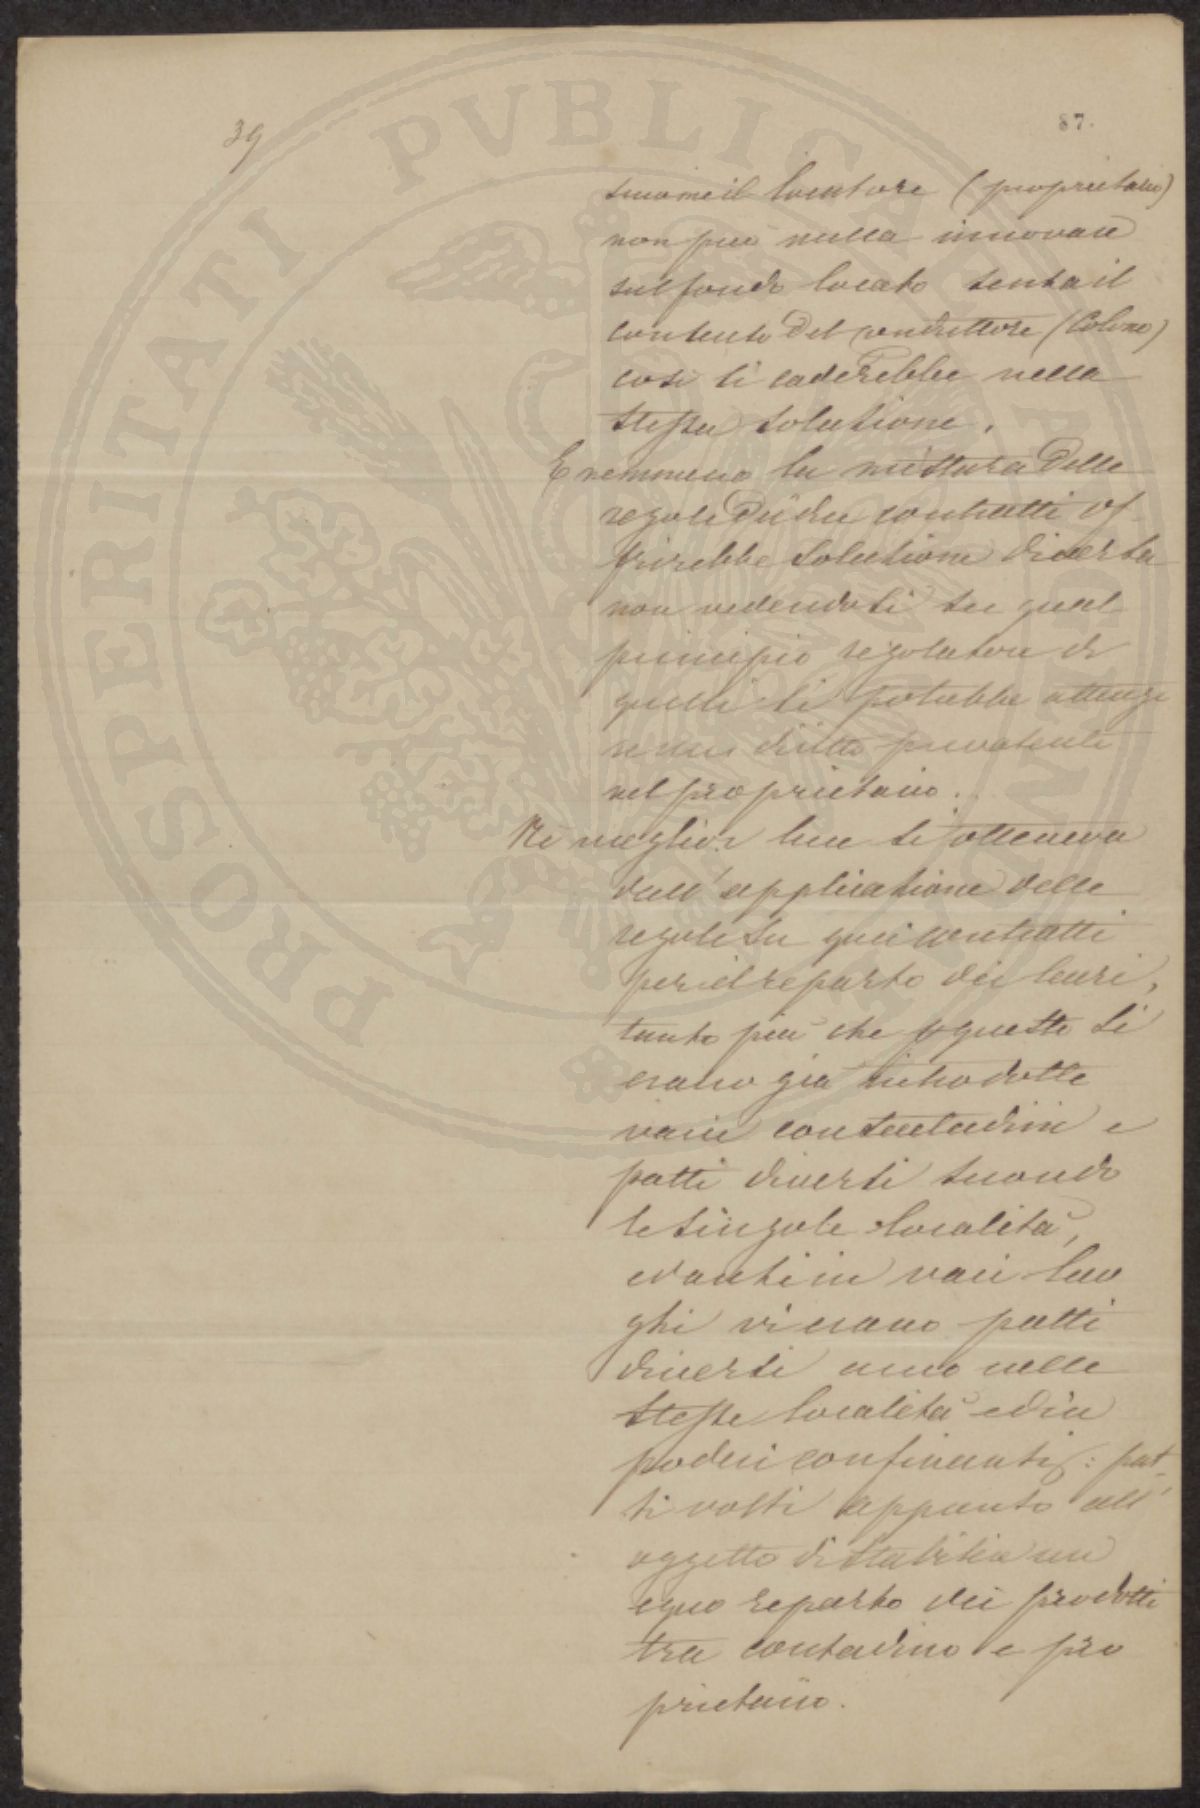 39
87.
siccome il locatore (proprietario)
non può nulla innovare
sul fondo locato senza il
consenso del conduttore (Colono)
così si caderebbe nella
stessa soluzione.
E nemmeno la mistura delle
regole dei due contratti of-
frirebbe soluzione diversa
non vedendosi su qual
principio regolatore di
quelli si potrebbe attinge
re un diritto prevalente
nel proprietario.
Nè miglior luce si otteneva
dall'applicazione delle
regole su quei contratti
per il reparto dei lauri,
tanto più che questo si
erano già introdotte
varie consuetudini e
patti diversi secondo
le singole località,
ed anti in vari luo
ghi vi erano patti
diversi anco nelle
stesse località ed in
poderi confinanti: pat-
ti volti appunto all'
oggetto di stabilire un
equo reparto dei prodotti
tra contadino e pro
prietario.
PROSPERITATI PVBLICAE AVGENDAE